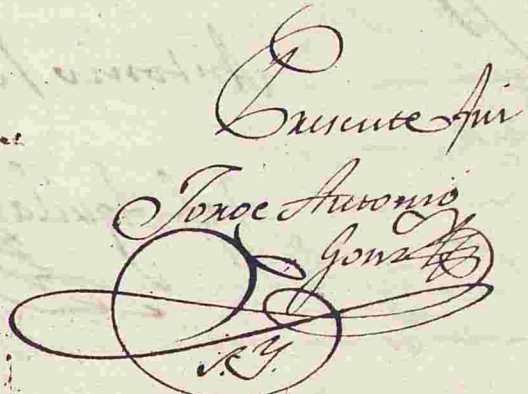 Presente fui
Jorge Antonio
Gonz